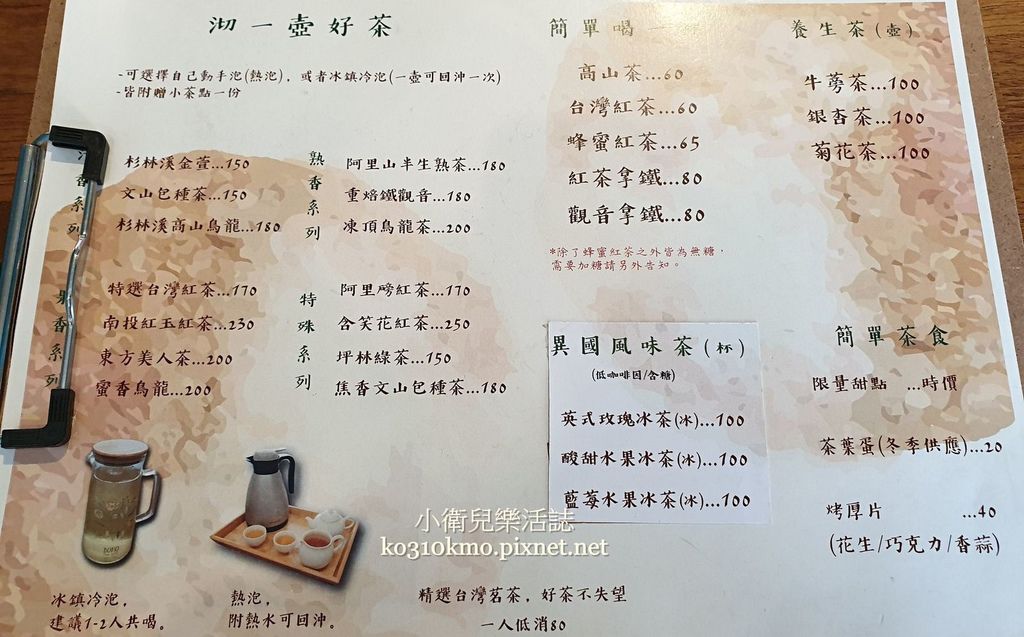 沏一壺好茶
-可選擇自己動手泡(熱泡)，或者冰鎮冷泡(一壺可回沖一次)
-皆附贈小茶點一份
香系列
杉林溪金萱...150
文山包種茶...150
杉林溪高山烏龍...180
熟香系列
阿里山半生熟茶...180
重焙鐵觀音...180
凍頂烏龍茶...200
香系列
特選台灣紅茶...170
南投紅玉紅茶...230
東方美人茶...200
蜜香烏龍...200
特殊系列
阿里磅紅茶...170
含笑花紅茶...250
坪林綠茶...150
焦香文山包種茶...180
冰鎮冷泡，
建議1-2人共喝。
熱泡，
附熱水可回沖。
簡單喝一杯
高山茶...60
台灣紅茶...60
蜂蜜紅茶...65
紅茶拿鐵...80
觀音拿鐵...80
*除了蜂蜜紅茶之外皆為無糖，
需要加糖請另外告知。
異國風味茶(杯)
(低咖啡因/含糖)
英式玫瑰冰茶(冰)...100
酸甜水果冰茶(冰)...100
藍莓水果冰茶(冰)...100
養生茶(壺)
牛蒡茶...100
銀杏茶...100
菊花茶...100
簡單茶食
限量甜點 ...時價
茶葉蛋(冬季供應)...20
烤厚片 ...40
(花生/巧克力/香蒜)
精選台灣茗茶，好茶不失望
一人低消80
小衛兒樂活誌
ko310kmo.pixnet.net